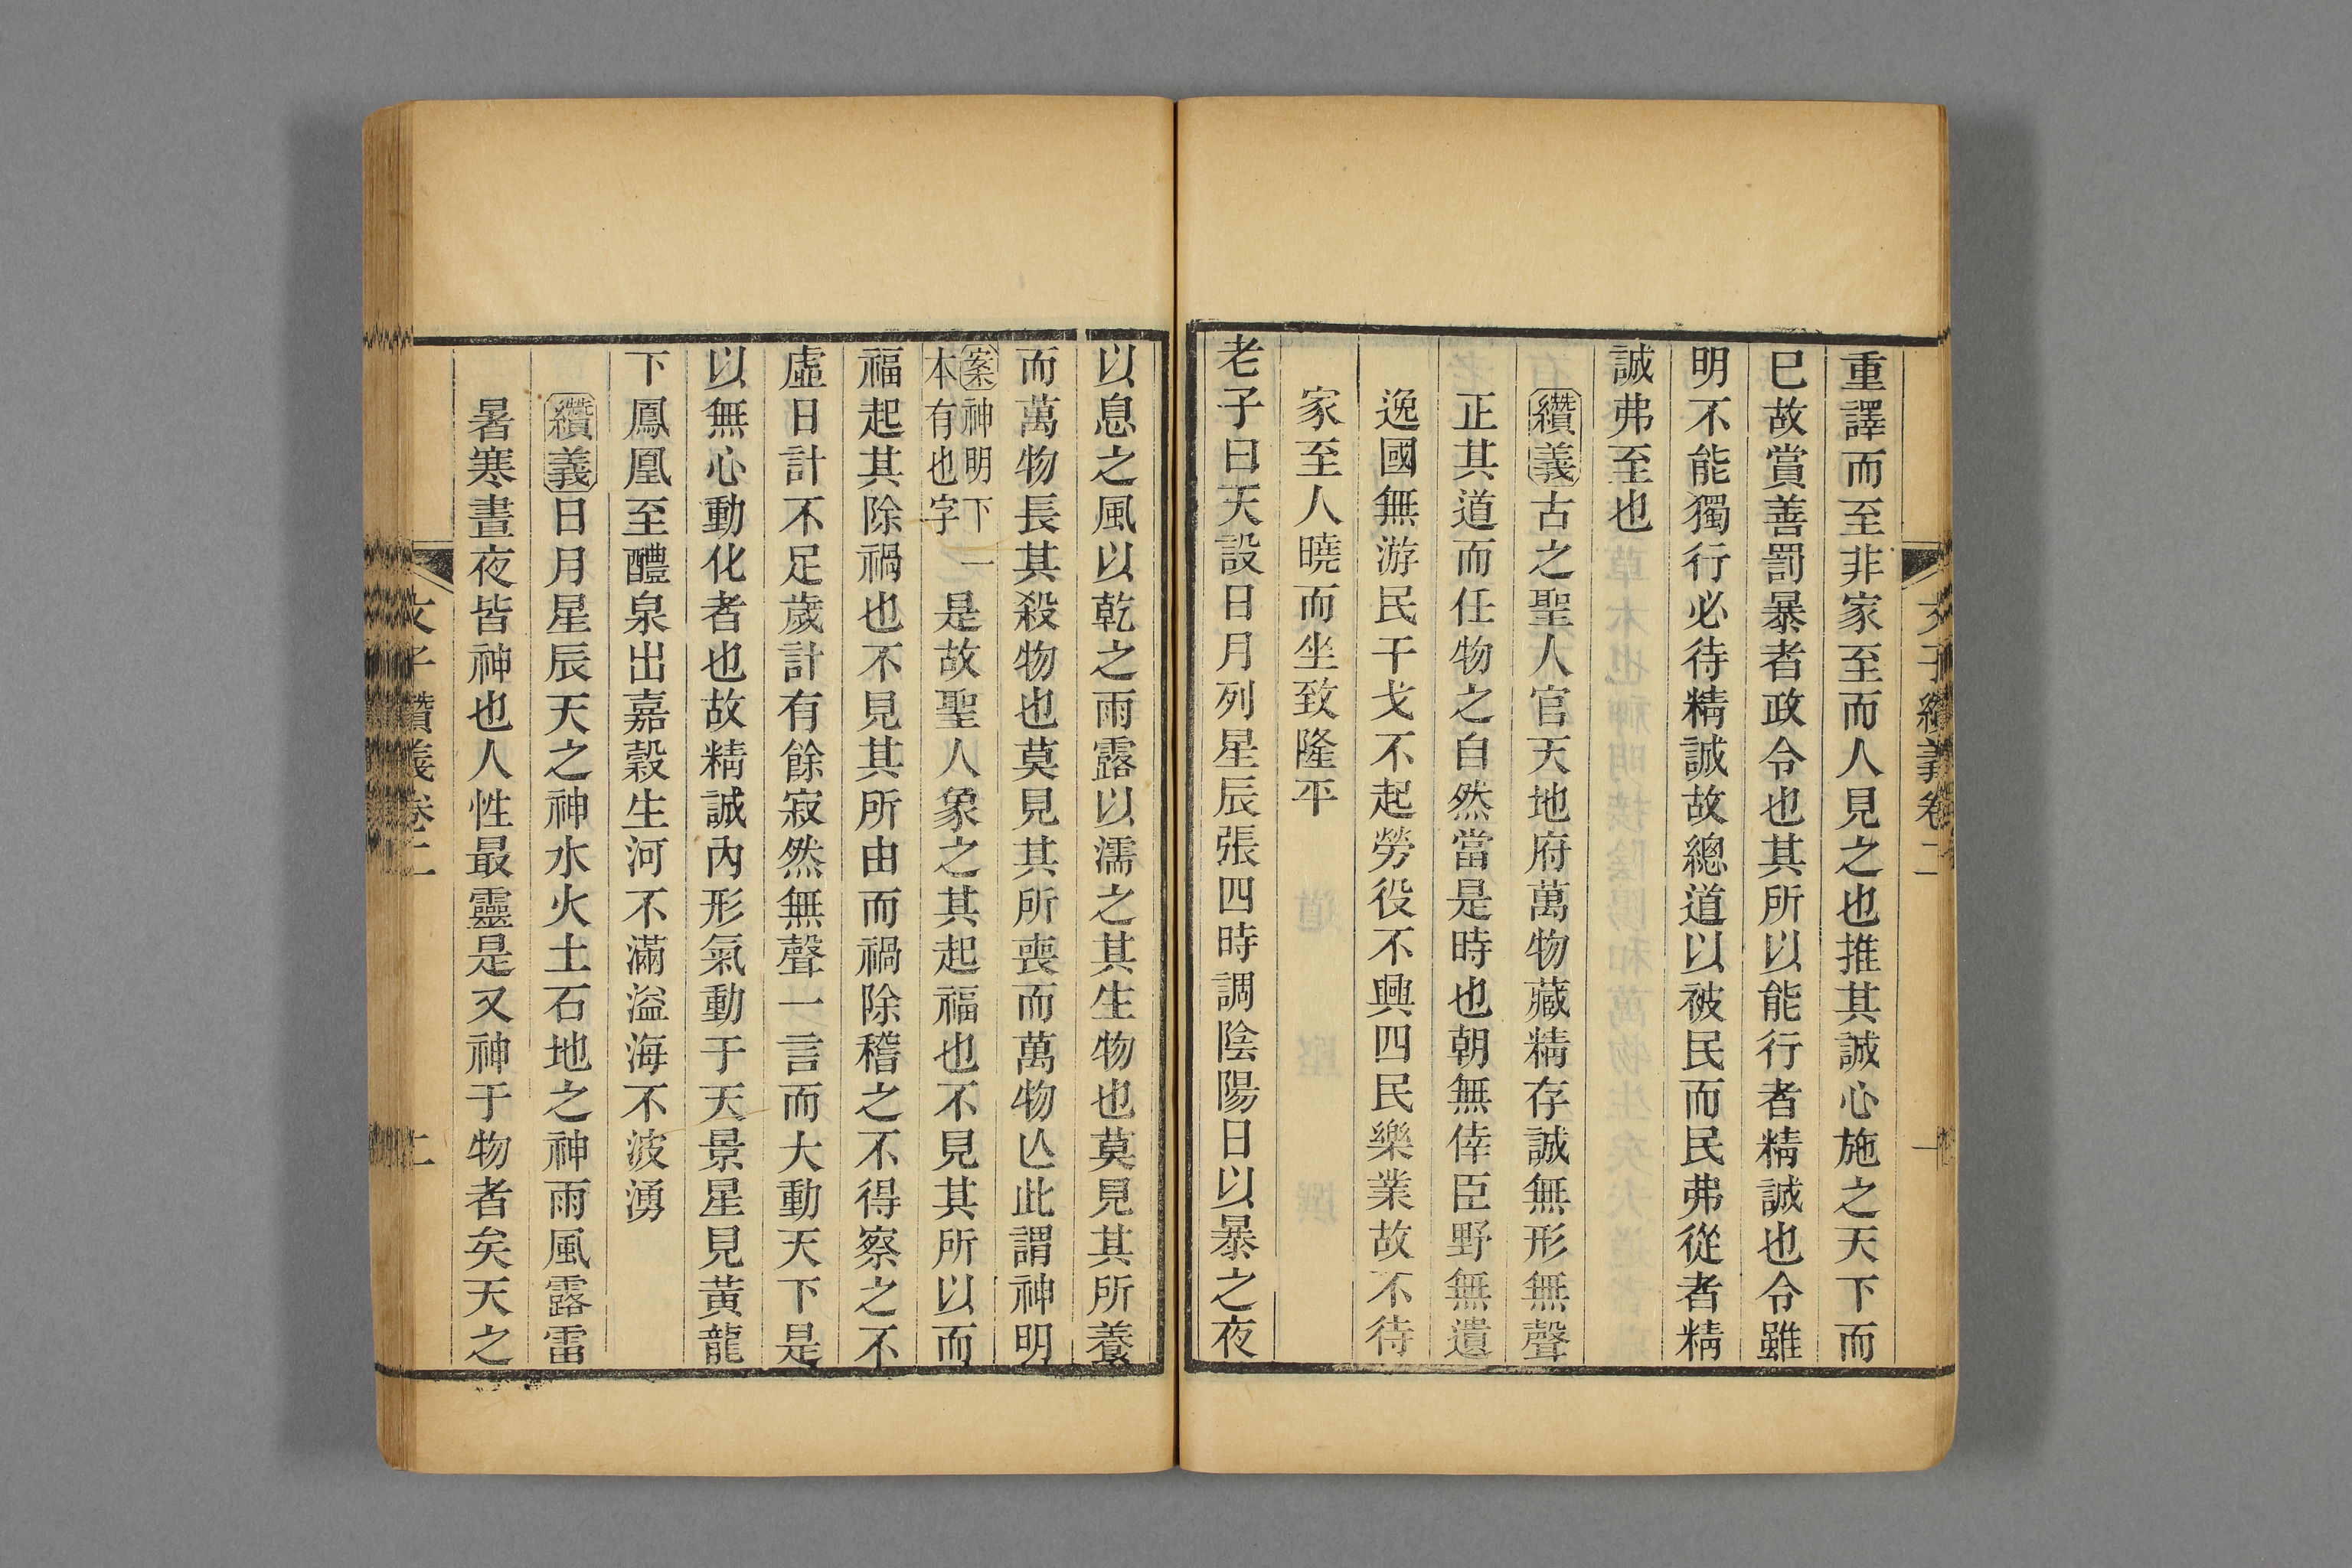 文子纘義卷二
一
重譯而至非家至而人見之也推其誠心施之天下而
巳故賞善罰暴者政令也其所以能行者精誠也令雖
明不能獨行必待精誠故總道以被民而民弗從者精
誠弗至也
纘義古之聖人官天地府萬物藏精存誠無形無聲
正其道而任物之自然當是時也朝無倖臣野無遺
逸國無游民干戈不起勞役不興四民樂業故不待
家至人曉而坐致隆平
老子曰天設日月列星辰張四時調陰陽日以暴之夜
以息之風以乾之雨露以濡之其生物也莫見其所養
而萬物長其殺物也莫見其所喪而萬物亾此謂神明
案神明下一
本有也字
是故聖人象之其起福也不見其所以而
福起其除禍也不見其所由而禍除稽之不得察之不
虛日計不足歲計有餘寂然無聲一言而大動天下是
以無心動化者也故精誠內形氣動于天景星見黃龍
下鳳凰至醴泉出嘉穀生河不滿溢海不波湧
纘義日月星辰天之神水火土石地之神雨風露雷
暑寒晝夜皆神也人性最靈是又神于物者矣天之
文子纘義卷二
二